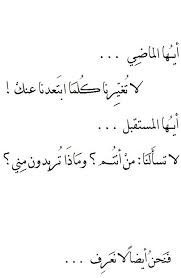 أيّها الماضي ...
لا تُغيّرنا كُلما ابتعدنا عنك !
أيّها المستقبل ...
لا تسألنا : من أنتُم ؟ وماذا تُريدون منّي ؟
فنحنُ أيضاً لا نعرف ...